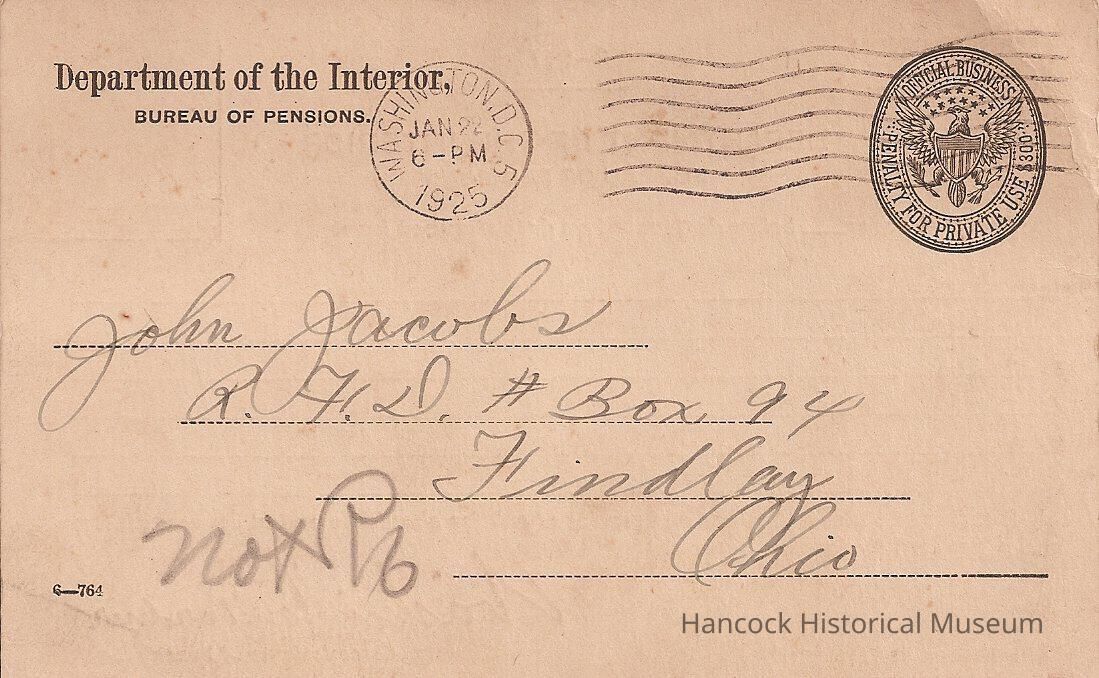 Department of the Interior,
BUREAU OF PENSIONS.
WASHINGTON, D.C. 5
JAN 22
6-PM
1925
OFFICIAL BUSINESS
PENALTY FOR PRIVATE USE $300
John Jacobs
R. F. D. # Box 94
Findlay
Ohio
not R6
6—764
Hancock Historical Museum